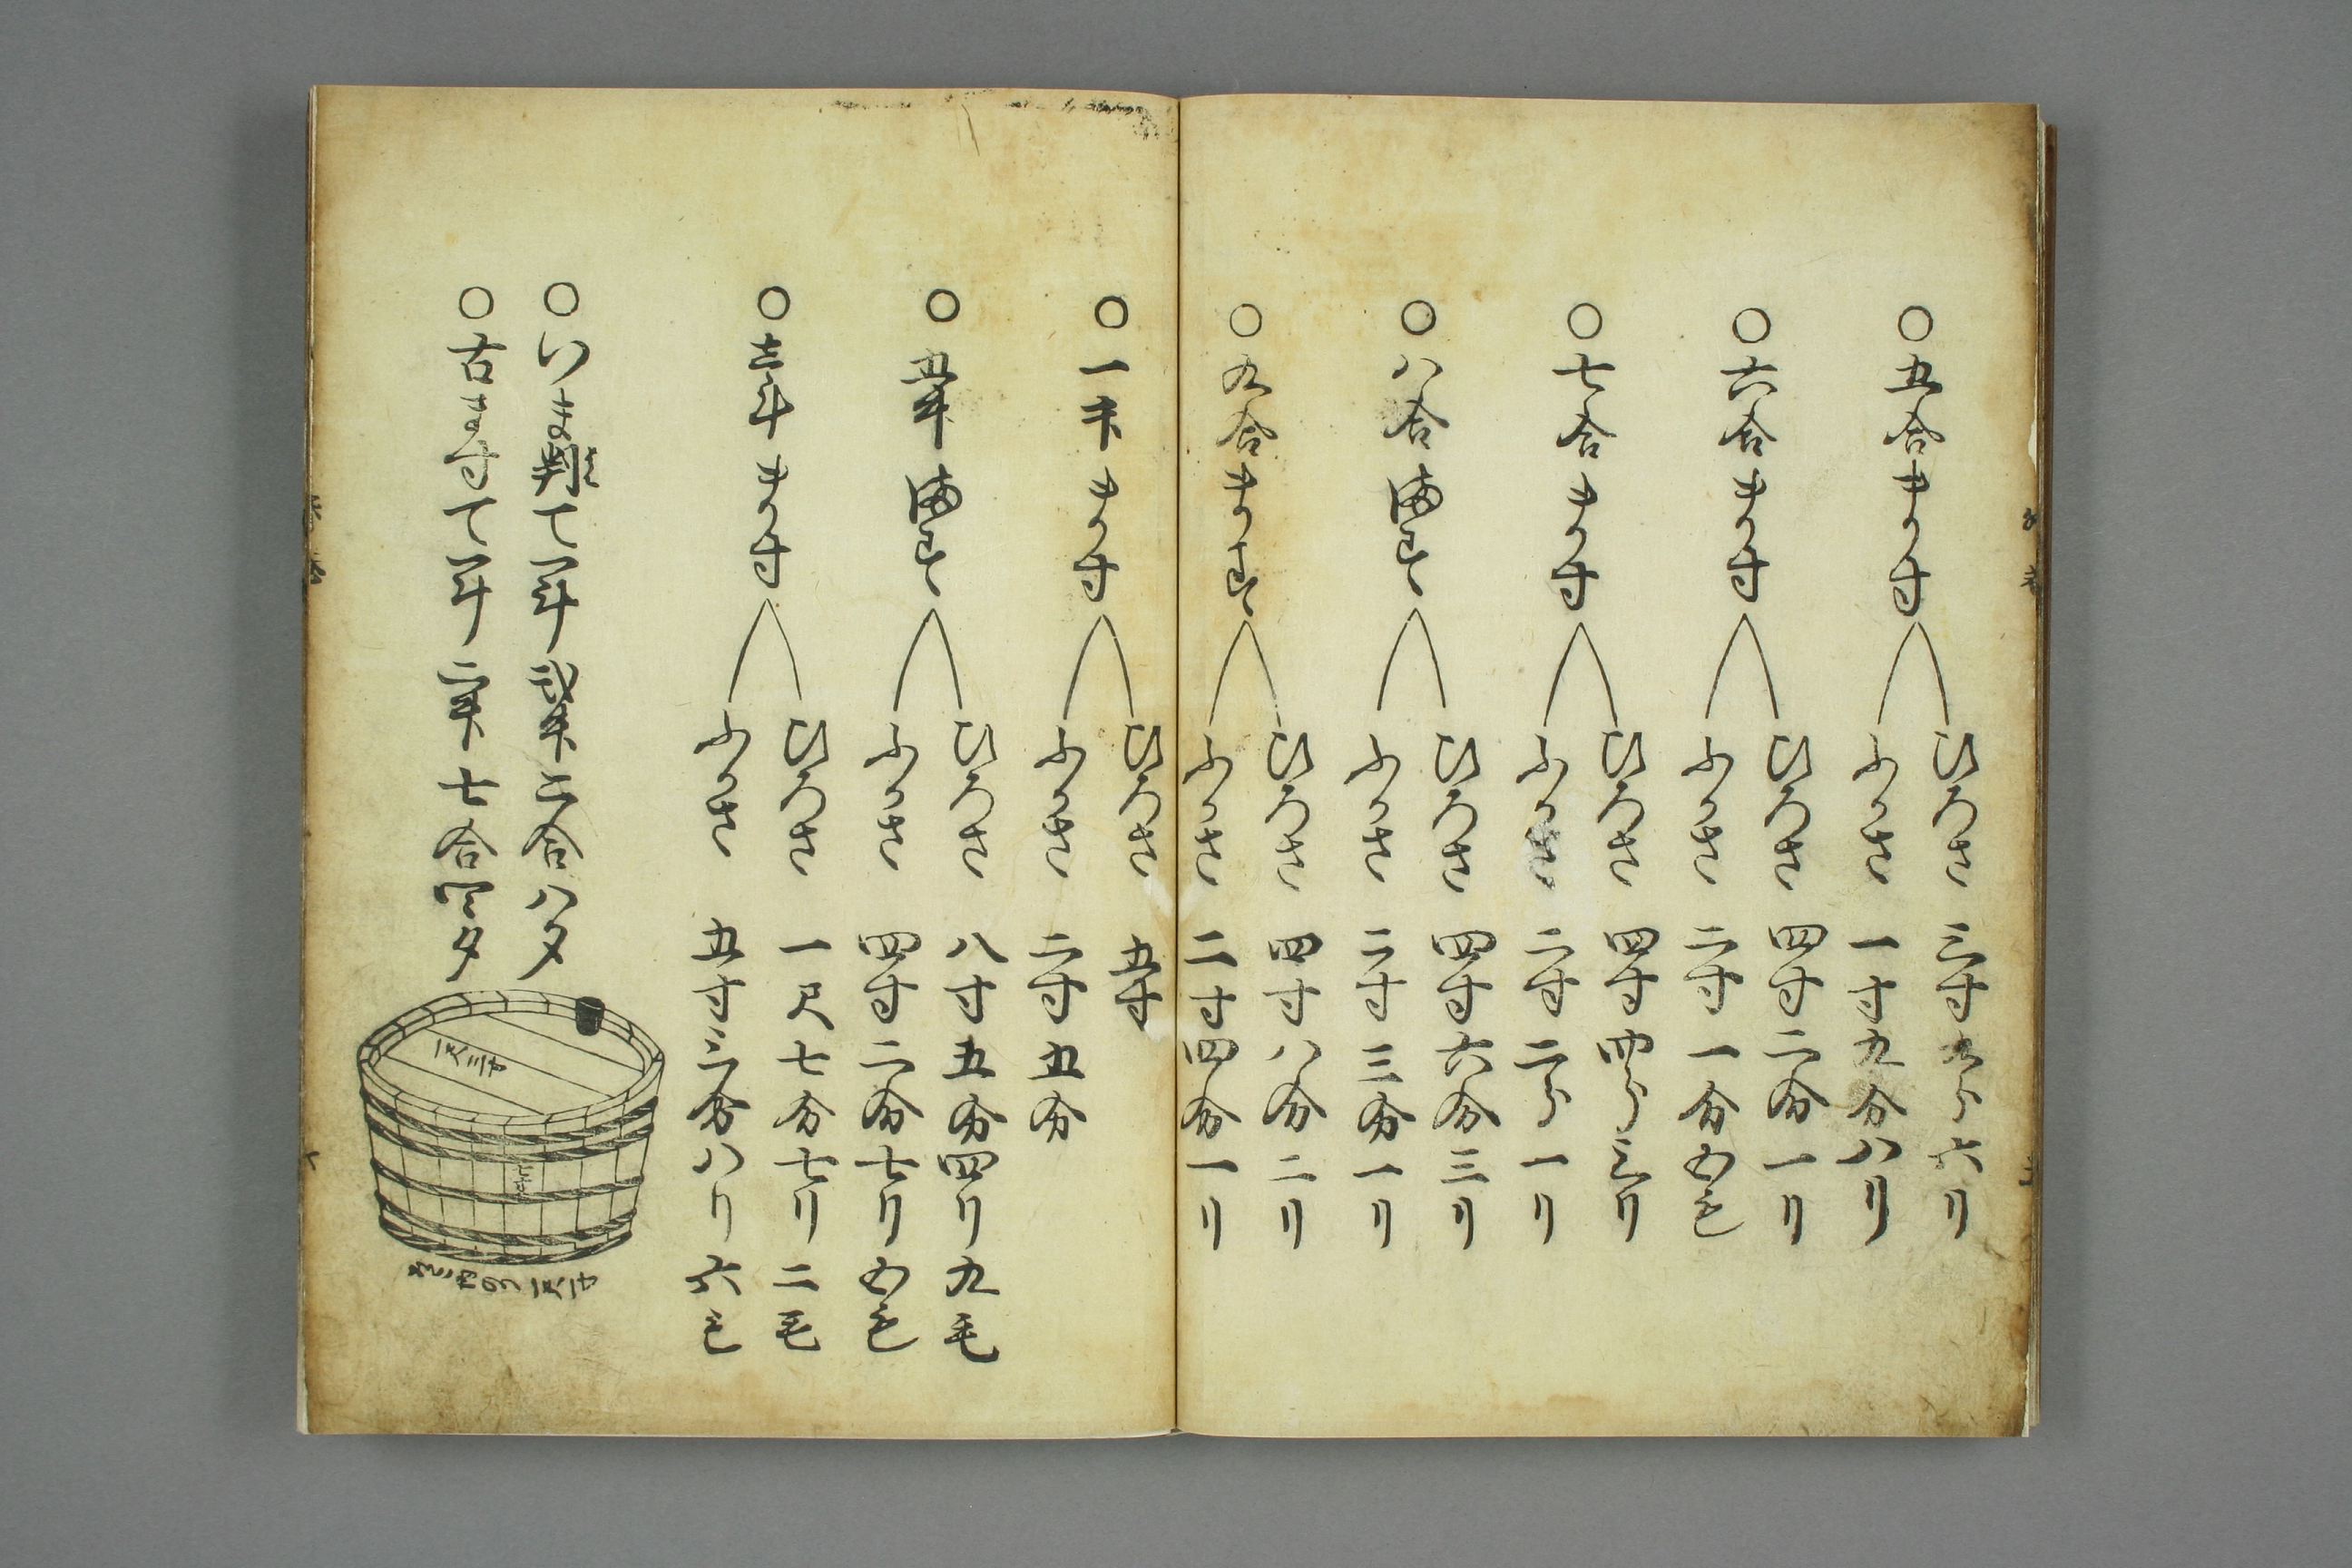 ○五合ますハ
ひろさハ 三寸九分六リ
ふかさハ 一寸九分八リ
○六合ますハ
ひろさハ 四寸二分一リ
ふかさハ 二寸一分五毛
○七合ますハ
ひろさハ 四寸四分三リ
ふかさハ 二寸二分一リ
○八合ますハ
ひろさハ 四寸六分三リ
ふかさハ 二寸三分一リ
○九合ますハ
ひろさハ 四寸八分二リ
ふかさハ 二寸四分一リ
○一升ますハ
ひろさハ 五寸
ふかさハ 二寸五分
○五升ますハ
ひろさハ 八寸五分四リ九毛
ふかさハ 四寸二分七リ五毛
○壱斗ますハ
ひろさハ 一尺七分七リ二毛
ふかさハ 五寸三分八リ六毛
○いま判にて一斗弐升三合八夕
○古ますにて一斗二升七合四夕
一尺三寸
七寸